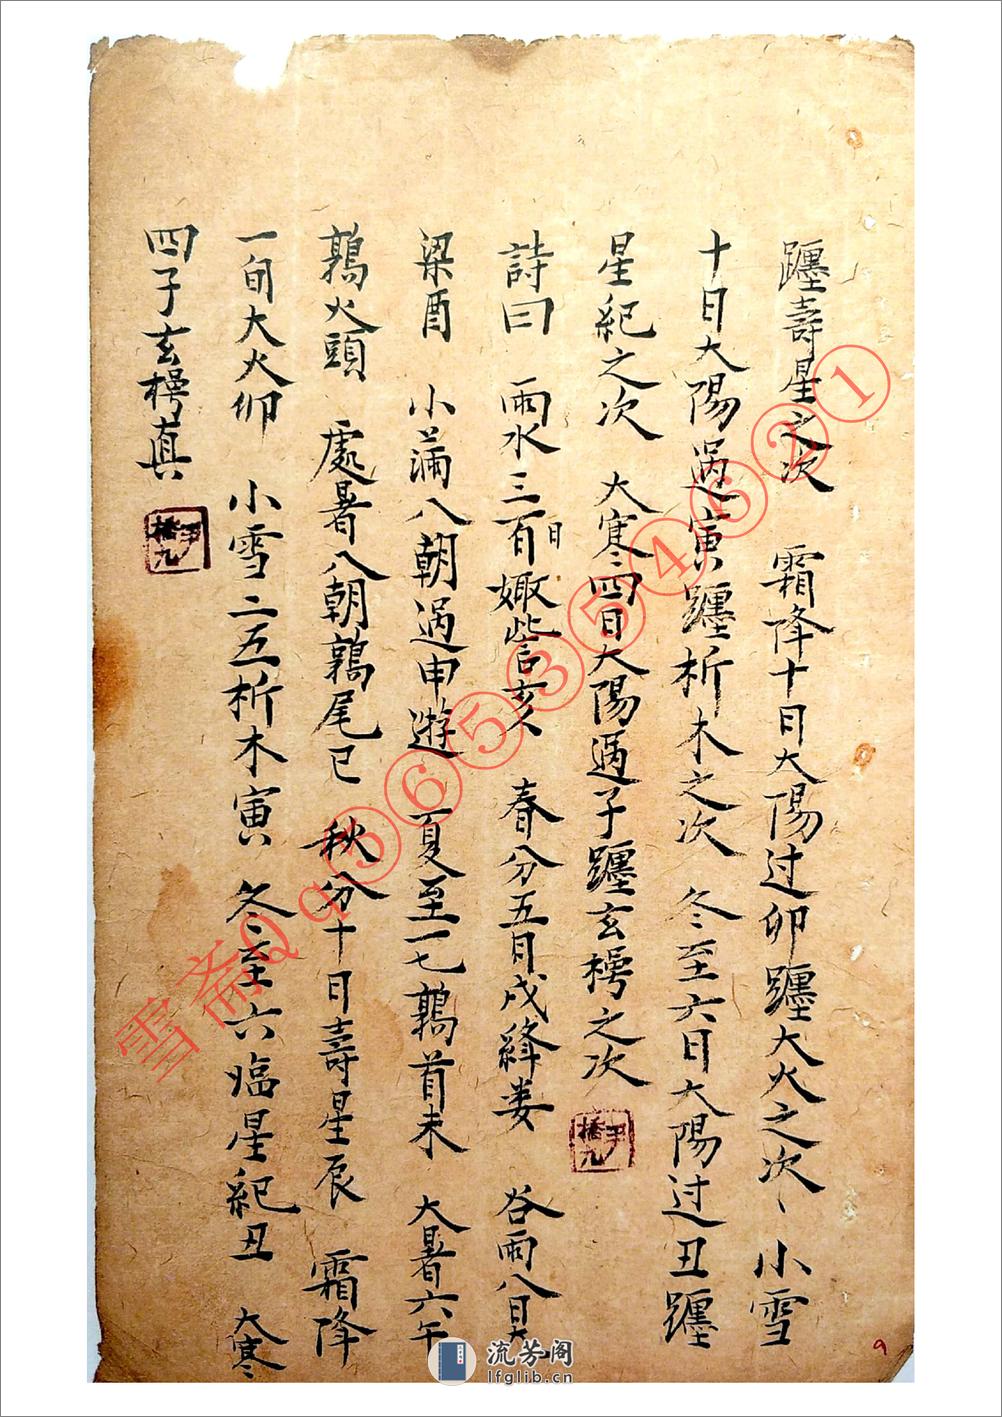 躔壽星之次　霜降十日太陽过卯躔大火之次、小雪
十日太陽過寅躔析木之次　冬至六日太陽过丑躔
星紀之次　大寒四日太陽過子躔玄枵之次
詩曰　雨水三百日娵訾亥　春分五日戌絳娄　谷雨八日大
梁酉　小滿八朝過申遊　夏至一七鶉首未　大暑六午
鶉火頭　處暑八朝鶉尾巳　秋分十日壽星辰　霜降
一旬大火卯　小雪二五析木寅　冬至六臨星紀丑　大寒
四子玄枵真
雪斋Qq365354621
流芳阁
lfglib.cn
9